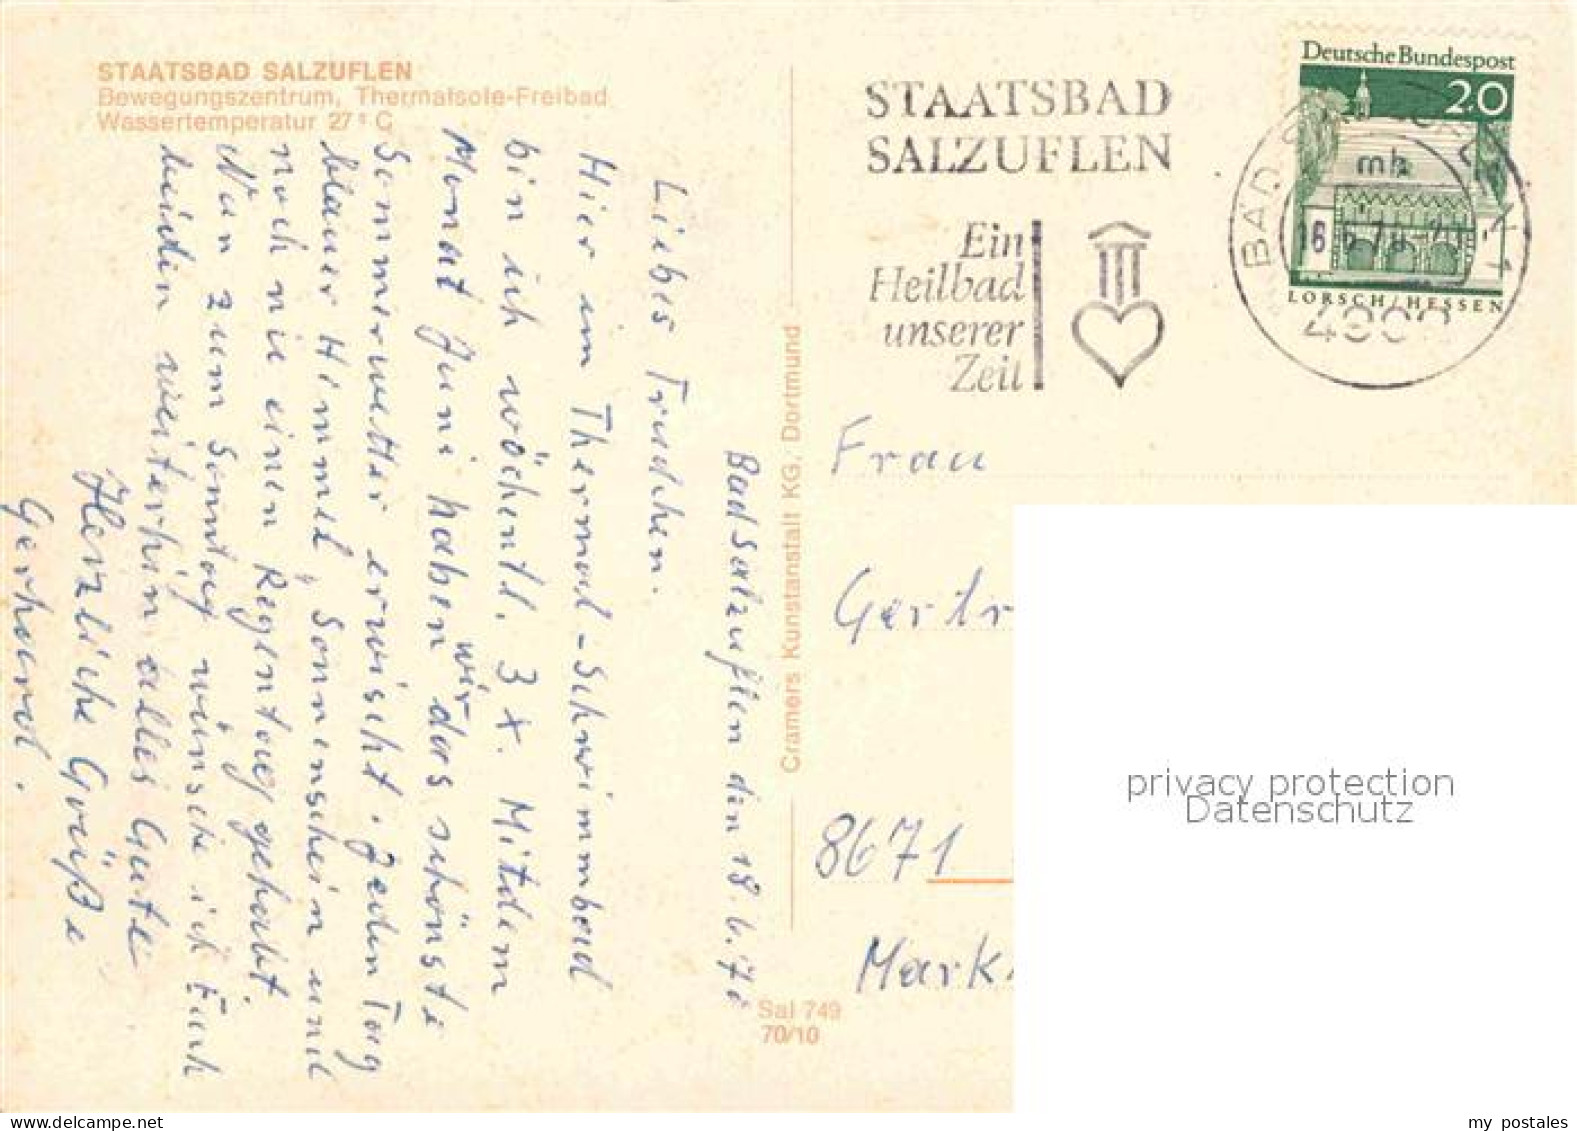 STAATSBAD SALZUFLEN
Bewegungszentrum, Thermalsole-Freibad
Wassertemperatur 27° C
Bad Salzuflen den 18.6.70
Liebes Trudchen.
Hier im Thermal-Schwimmbad
bin ich wöchentl. 3 x. Mit dem
Monat Juni haben wir das schönste
Sommerwetter erwischt. Jeden Tag
blauer Himmel, Sonnenschein und
noch nie einen Regentag gehabt.
Nun zum Sonntag wünsche ich Euch
beiden weiterhin alles Gute
Herzliche Grüße
Gerhard.
Cramers Kunstanstalt KG, Dortmund
Sal 749
70/10
STAATSBAD
SALZUFLEN
Ein
Heilbad
unserer
Zeit
Deutsche Bundespost
20
LORSCH/HESSEN
BAD
mh
1
Frau
Gertr
8671
Mark
privacy protection
Datenschutz
www.delcampe.net
my_postales